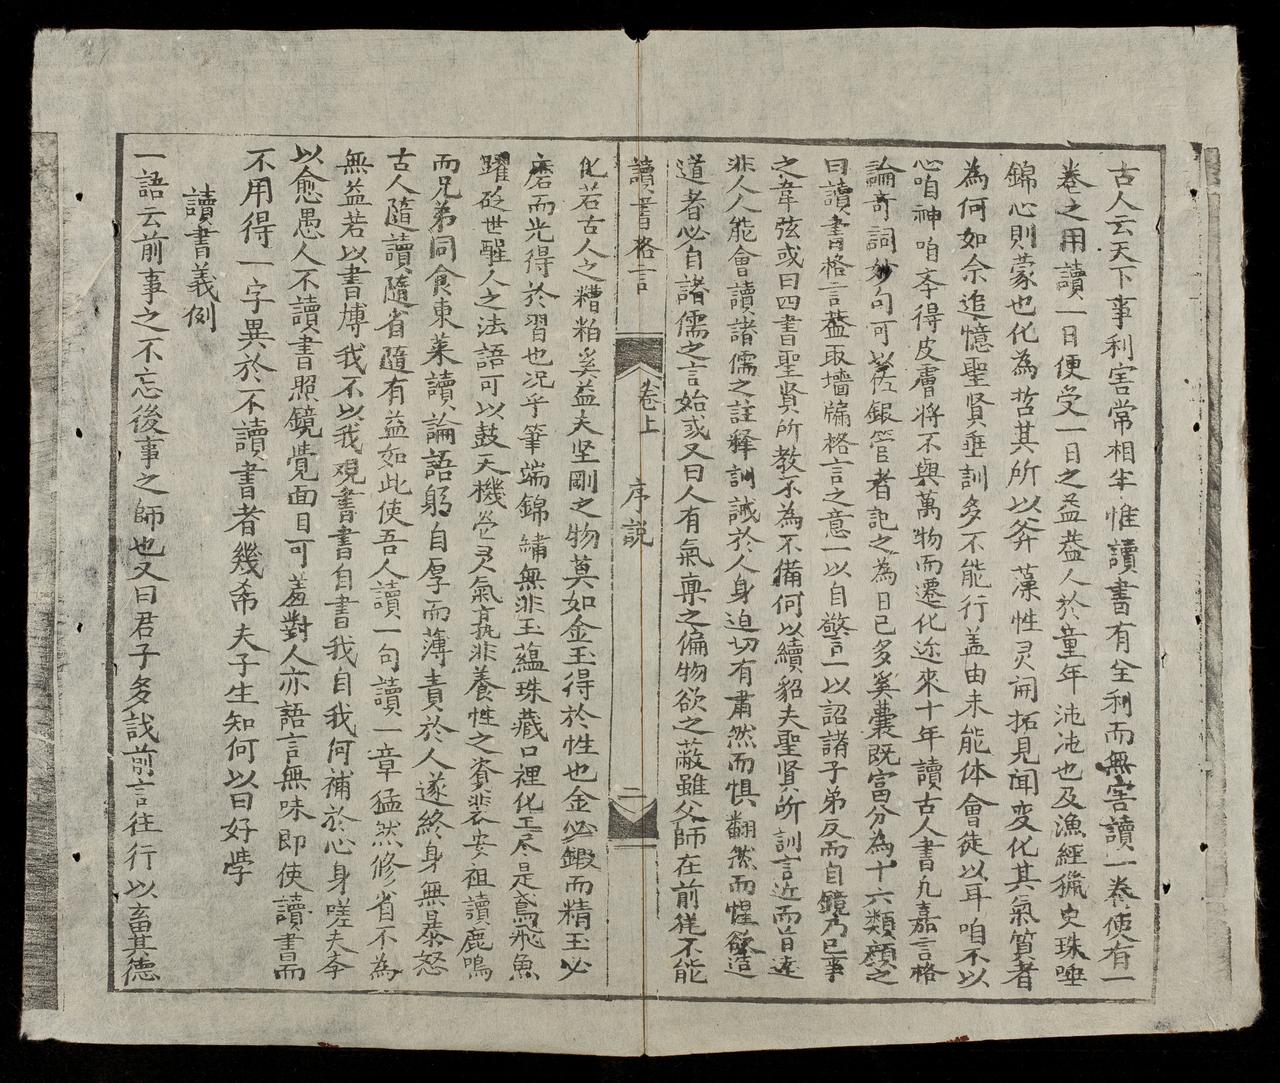 古人云天下事利害常相半惟讀書有全利而無害讀一卷便有一
卷之用讀一日便受一日之益蓋人於童年沌沌也及漁經獵史珠唾
錦心則蒙也化為哲其所以斧藻性灵開拓見聞变化其氣質者
為何如余追憶聖賢垂訓多不能行盖由未能体會徒以耳咱不以
心咱神咱夲得皮膚將不與萬物而遷化迩來十年讀古人書凡嘉言格
論奇詞妙句可以佐銀管者記之為日已多奚囊既富分為十六類顏之
曰讀書格言蓋取墻牖格言之意一以自警一以詔諸子弟反而自鏡乃已事
之韋弦或曰四書聖賢所教不為不備何以續貂夫聖賢所訓言近而旨遠
非人人能會讀諸儒之註释訓誡於人身迫切有肅然而惧翻然而惺欲造
道者必自諸儒之言始或又曰人有氣禀之偏物欲之蔽雖父師在前徃不能
讀書格言 卷上 序説 二
化若古人之糟粕奚益夫坚剛之物莫如金玉得於性也金必鍛而精玉必
磨而光得於習也况乎筆端錦繡無非玉蘊珠藏口裡化工尽是鳶飛魚
躍砭世醒人之法語可以鼓天機灵氣孰非養性之資裴安祖讀鹿鳴
而兄弟同食東莱讀論語躬自厚而薄責於人遂終身無暴怒
古人隨讀隨省隨有益如此使吾人讀一句讀一章猛然修省不為
無益若以書博我不以我观書書自書我自我何補於心身嗟夫夲
以愈愚人不讀書照鏡覺面目可羞對人亦語言無味即使讀書而
不用得一字異於不讀書者幾希夫子生知何以曰好学
讀書義例
一語云前事之不忘後事之師也又曰君子多識前言往行以畜其德